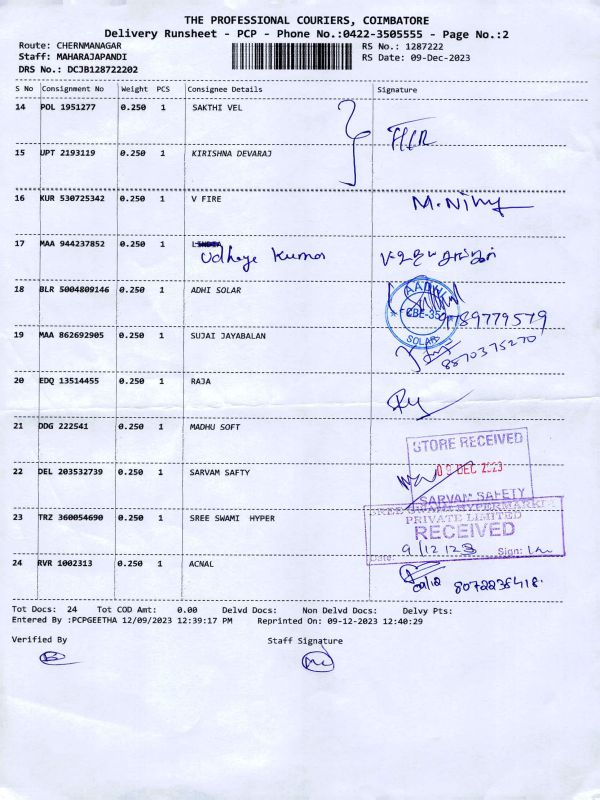 THE PROFESSIONAL COURIERS, COIMBATORE
Delivery Runsheet - PCP - Phone No.:0422-3505555 - Page No.:2
Route: CHERNMANAGAR RS No.: 1287222
Staff: MAHARAJAPANDI RS Date: 09-Dec-2023
DRS No.: DCJB128722202
S No Consignment No Weight PCS Consignee Details Signature
14 POL 1951277 0.250 1 SAKTHI VEL
15 UPT 2193119 0.250 1 KIRISHNA DEVARAJ
16 KUR 530725342 0.250 1 V FIRE
17 MAA 944237852 0.250 1
Udhaya Kumar
18 BLR 5004809146 0.250 1 ADHI SOLAR
CBE-35
SOLAR
9789779579
19 MAA 862692905 0.250 1 SUJAI JAYABALAN
8870375270
20 EDQ 13514455 0.250 1 RAJA
21 DDG 222541 0.250 1 MADHU SOFT
STORE RECEIVED
22 DEL 203532739 0.250 1 SARVAM SAFTY
09 DEC 2023
SARVAM SAFETY
23 TRZ 360054690 0.250 1 SREE SWAMI HYPER
PRIVATE LIMITED
RECEIVED
Date: 9/12/23 Sign:
24 RVR 1002313 0.250 1 ACNAL
8072236418.
Tot Docs: 24 Tot COD Amt: 0.00 Delvd Docs: Non Delvd Docs: Delvy Pts:
Entered By :PCPGEETHA 12/09/2023 12:39:17 PM Reprinted On: 09-12-2023 12:40:29
Verified By Staff Signature